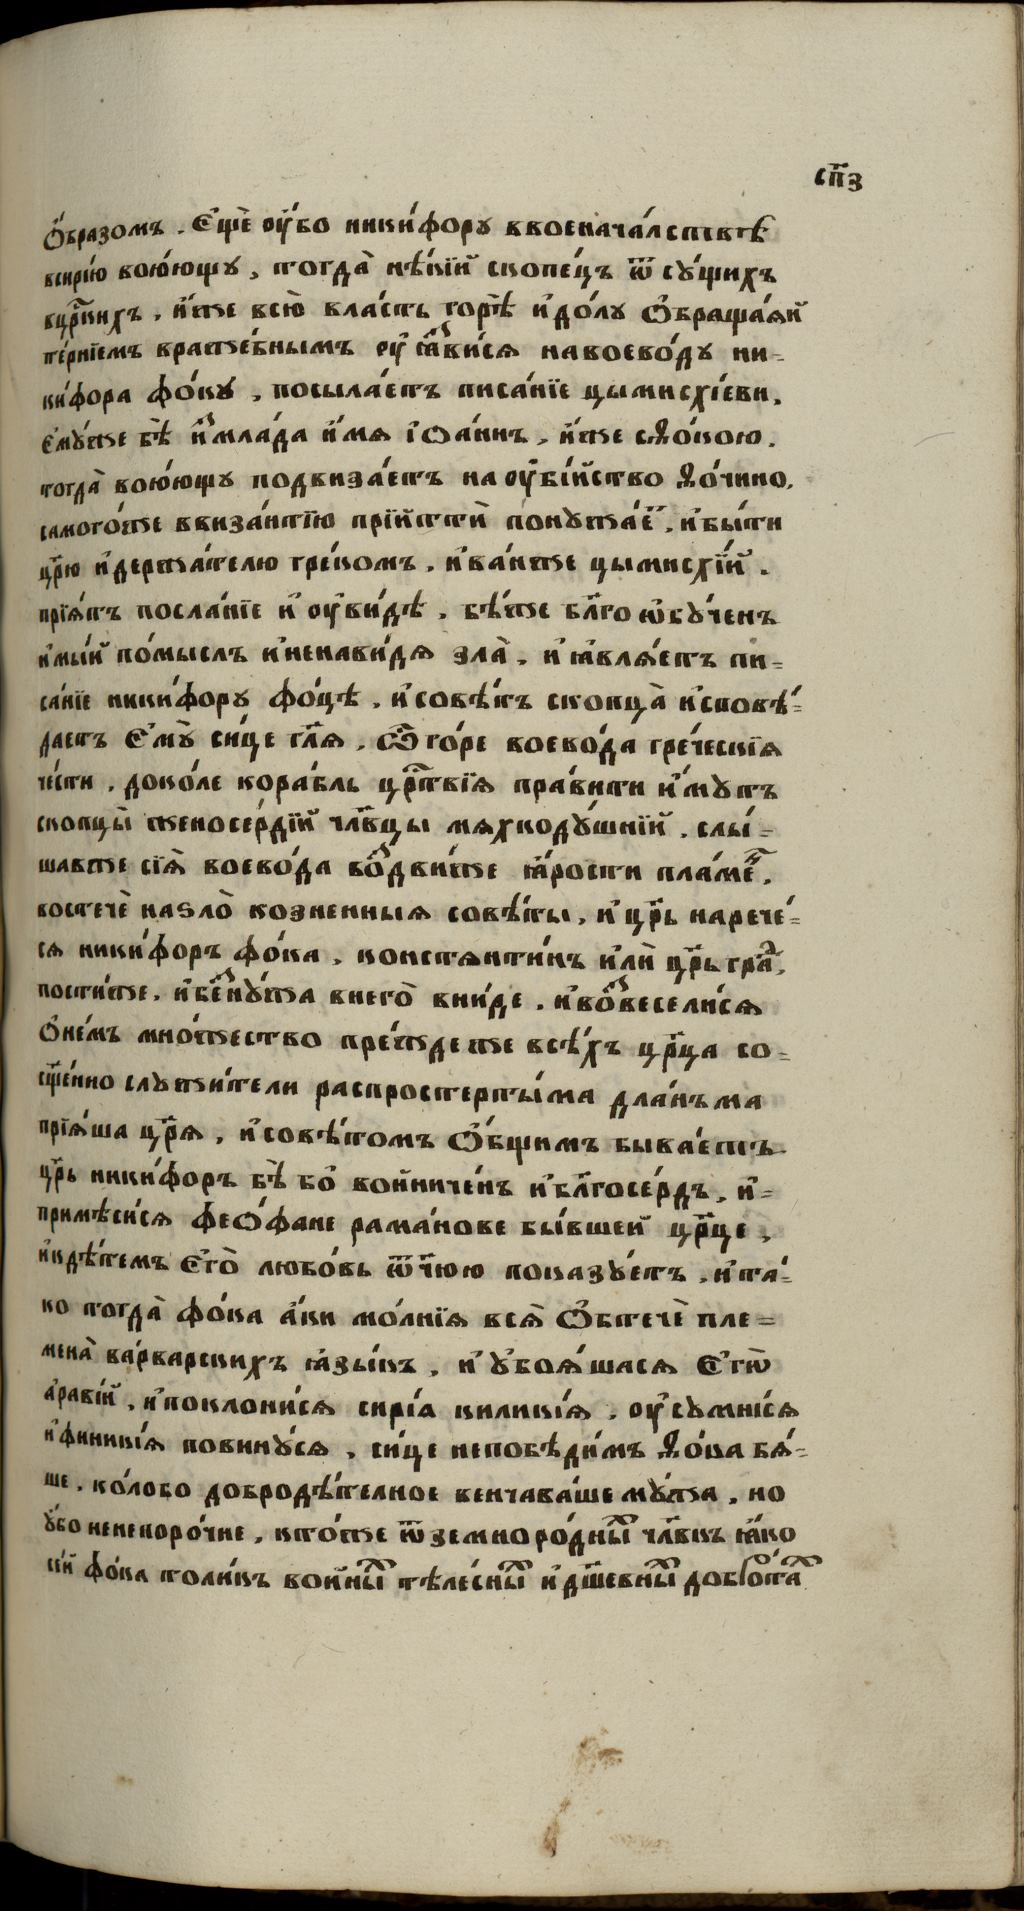 сп҃з
ѻ҆́бразомъ. Є҆щѐ ᲂу҆́бо ники́фору ввоеначáлствѣ
всирі́ю вою́ющу, тогда̀ нѣ́кїй скопе́цъ ѿ су́щихъ
вцр҃кихъ, и҆́же всю̀ вла́сть горѣ̀ и҆до́лу ѻ҆браща́ѧй
те́рнїемъ враже́бнымъ ᲂу҆ꙗ҆́звисѧ навоево́ду ни-
ки́фора фо́ку, посыла́етъ писа́нїе цымисхі́еви,
є҆му́же бѣ̀ и҆змла́да и҆́мѧ і҆ѻа́ннъ, и҆́же сѳо́кою.
тогда̀ вою́ющу подвиза́етъ на ᲂу҆бі́йство ѳо́чино,
самого́же ввиза́нтїю прїйттѝ понужа́є҆т, и҆бы́ти
цр҃ю и҆держа́телю гре́комъ, и҆ва́нже цымисхі́й.
прїѧ́тъ посла́нїе и҆ ᲂу҆ви́дѣ, бѣ́же бл҃го ѡ҆бу́ченъ
и҆мы́й по́мыслъ и҆ненави́дѧ зла̀, и҆ ꙗ҆влѧ́етъ пи-
са́нїе ники́фору фо́цѣ, и҆совѣ́тъ скопца̀ и҆сповѣ́-
даетъ є҆мꙋ̀ си́це гл҃ѧ, Ѽ го́ре воево́да гре́ческїѧ
че́сти, доко́ле кора́бль црⷭ҇твїѧ пра́вити и҆́мутъ
скопцы̀ женосе́рдїй чл҃вцы мѧхкоду́шнїй, слы́-
шавже сїѧ̀ воево́да воздви́же ꙗ҆́рости пла́мень,
востечѐ наѕло̀ козненныѧ совѣ́ты, и҆ цр҃ь нарече́-
сѧ ники́форъ фо́ка, констѧнти́нъ и҆лѝ цр҃ь гра́д,
пости́же, и҆без̾ну́жа внего̀ вни́де, и҆возвесели́сѧ
ѻ҆не́мъ мно́жество пре́жде же всѣ́хъ цр҃ца со-
сщ҃е́нно служи́тели распростерты́ма дла́ньма
прїѧ́ша цр҃ѧ, и҆совѣ́томъ ѻ҆́бщимъ быва́етъ
цр҃ь ники́форъ бѣ̀ бо҆ во́йниче́нъ и҆бл҃госе́рдъ, и҆-
примѣси́сѧ феѻ҆́фане рама́нове бы́вшей цр҃це,
и҆кдѣ́темъ є҆го̀ любо́вь ѿ҃чюю показу́етъ, и҆та́-
ко тогда̀ фо́ка а҆́ки мо́лнїѧ всѧ̀ ѻ҆бтечѐ пле-
мена̀ ва́рварскихъ ꙗ҆зы́къ, и҆ у҆боѧ́шасѧ є҆гѡ̀
а҆раві́й, и҆поклони́сѧ сирі́ѧ килики́ѧ, ᲂу҆сумні́сѧ
и҆финикі́ѧ повину́сѧ, си́це непобѣди́мъ ѳо́ка бѧ́-
ше, ко́лово добродѣ́телное венчава́ше му́жа, но
у҆́бо ненепоро́чне, кто́же ѿ земноро́дныⷯ чл҃вкъ ꙗ҆́ко
се́й фо́ка толи́къ во́йныⷨ тѣле́сныⷨ и҆дш҃евныⷨ добро́таⷨ